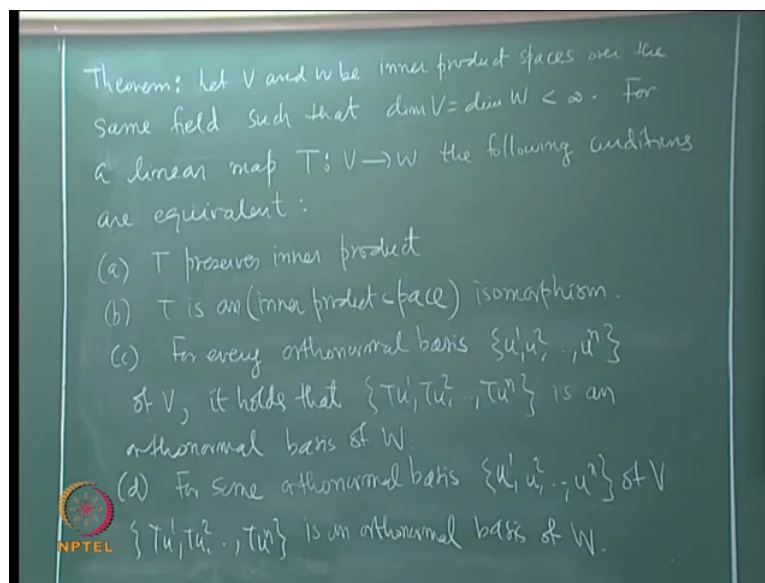 Theorem: Let V and W be inner product spaces over the
same field such that dim V = dim W < ∞. For
a linear map T: V → W the following conditions
are equivalent:
(a) T preserves inner product
(b) T is an (inner product space) isomorphism.
(c) For every orthonormal basis {u¹, u², .., uⁿ}
of V, it holds that {Tu¹, Tu², .., Tuⁿ} is an
orthonormal basis of W.
(d) For some orthonormal basis {u¹, u², .., uⁿ} of V
{Tu¹, Tu², .., Tuⁿ} is an orthonormal basis of W.
NPTEL